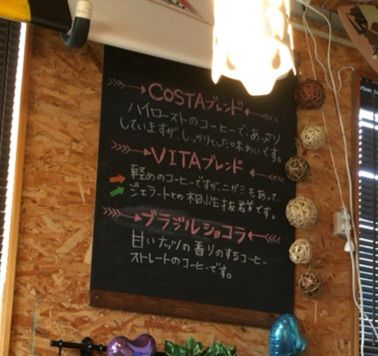 COSTAブレンド
ハイローストのコーヒーで、あっさり
していますが、しっかりとした味わいです。
VITAブレンド
軽めのコーヒーですが、ニガミもあって、
ジェラートとの相性抜群です。
ブラジルショコラ
甘いナッツの香りのするコーヒー
ストレートのコーヒーです。